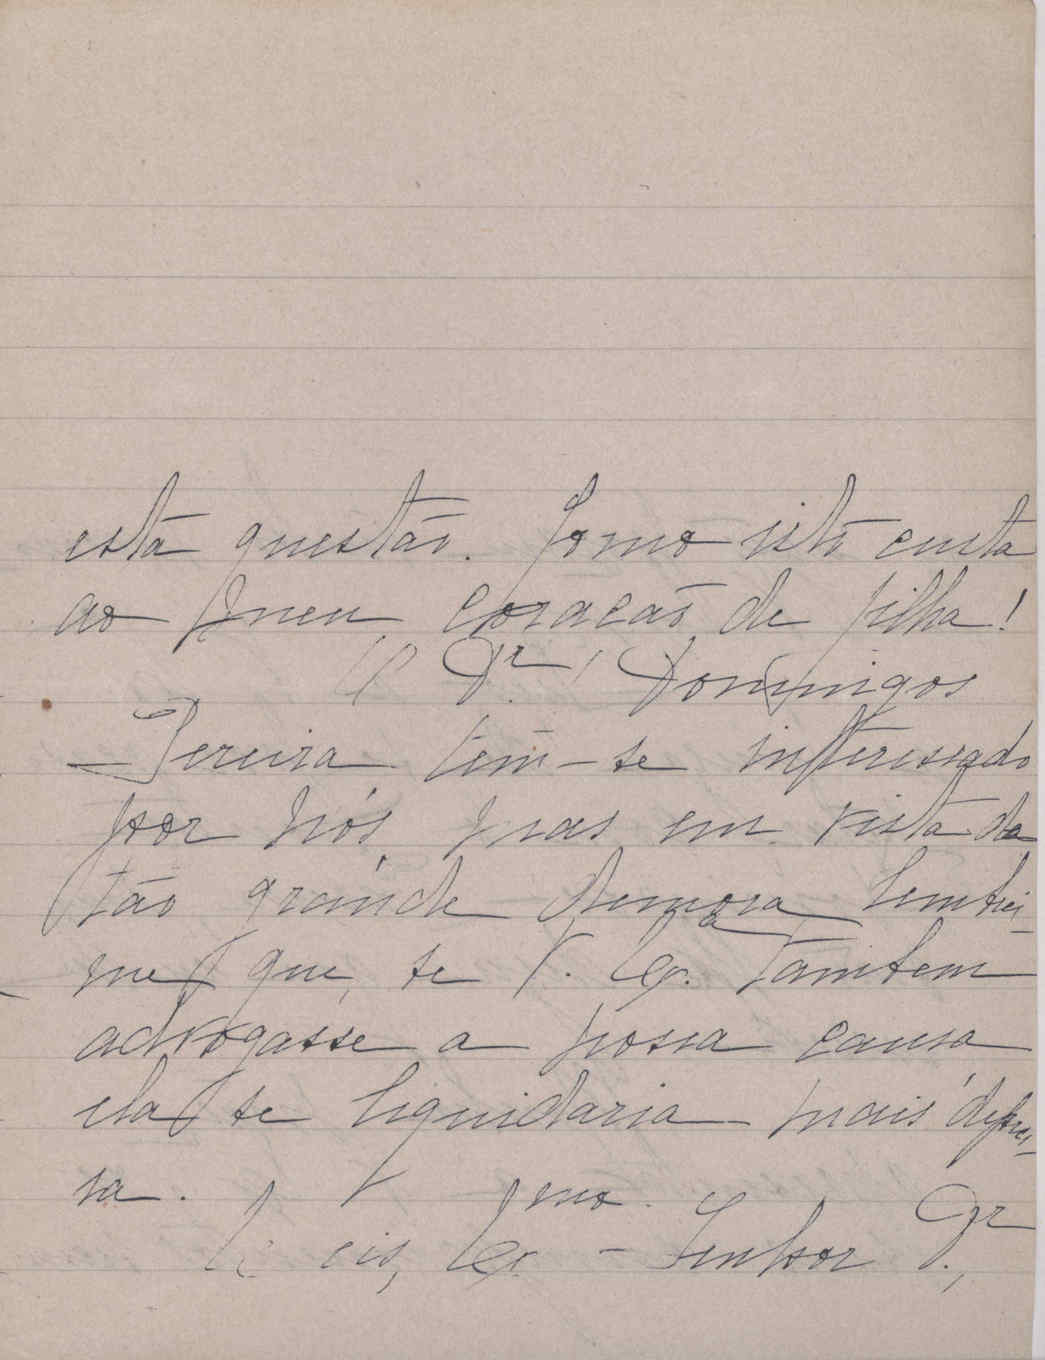 está questão. Como isto custa
ao meu coracão de filha!
O Dr. Domingos
Pereira tem-se interessado
por nós, mas em vista da
tão grande demora lembrei-
me que, se V. Exª. tambem
advogasse a nossa causa
ela se liquidaria mais depres-
sa.
E eis, Exmo. Senhor Dr.,